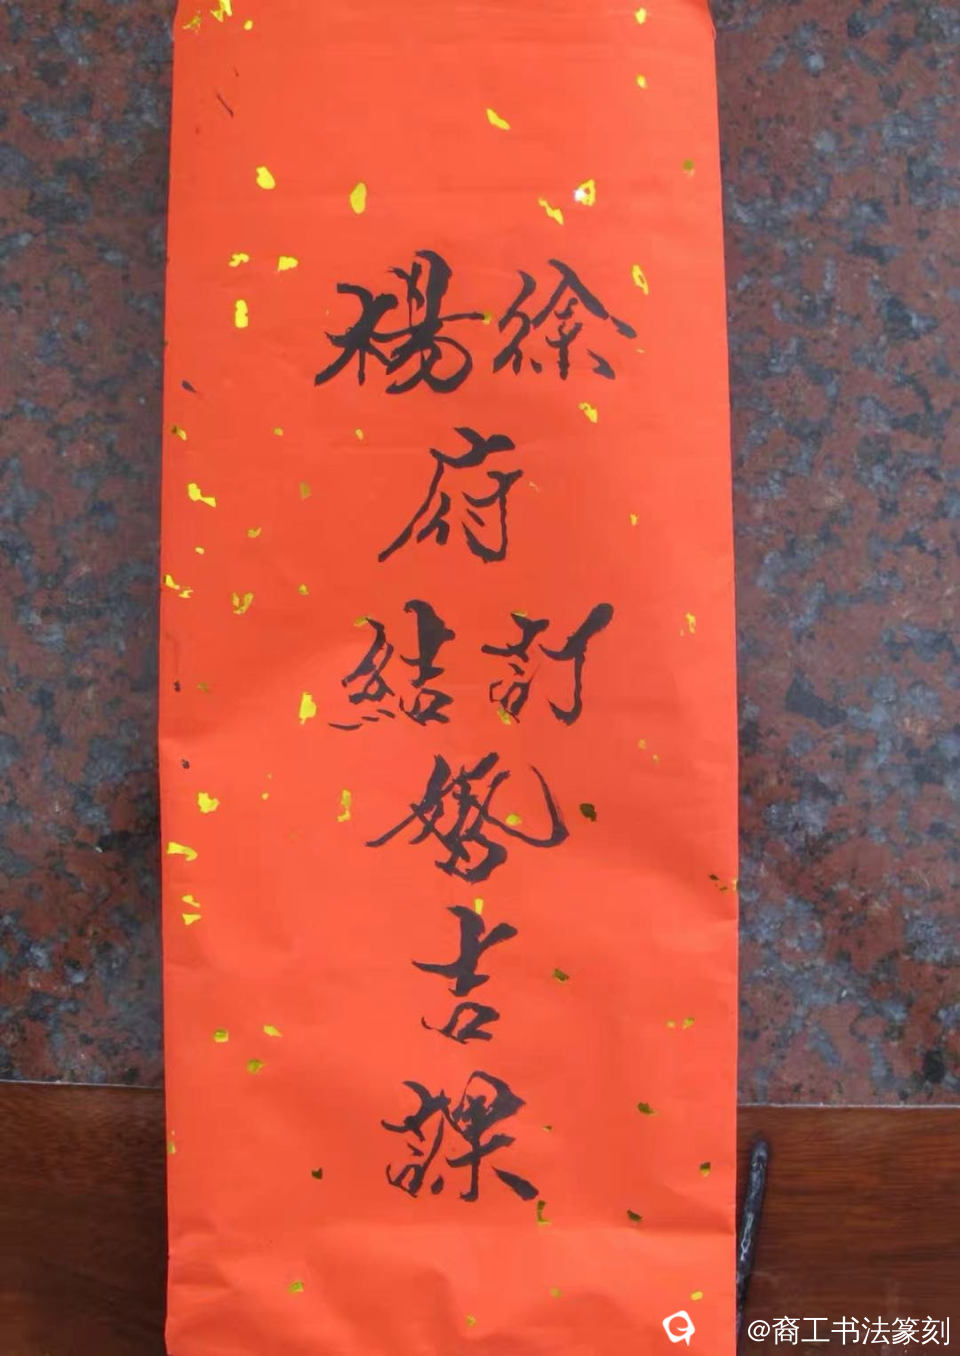 徐楊
府
訂結
婚
吉
課
@裔工书法篆刻